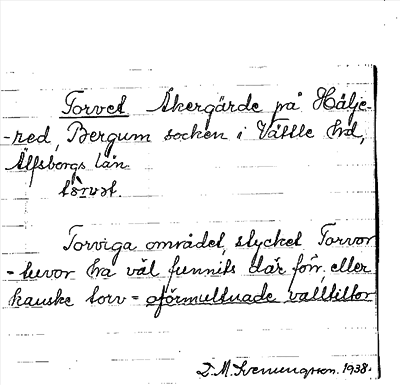 Torvet Åkergärde på Hälje-
-red, Bergum socken i Vättle hd,
Älfsborgs län
tòrvət.
Torviga området, stycket Torvor
-tuvor ha väl funnits där förr, eller
kanske torv = oförmultnade valltiltor
D. M. Svenungsson. 1938.